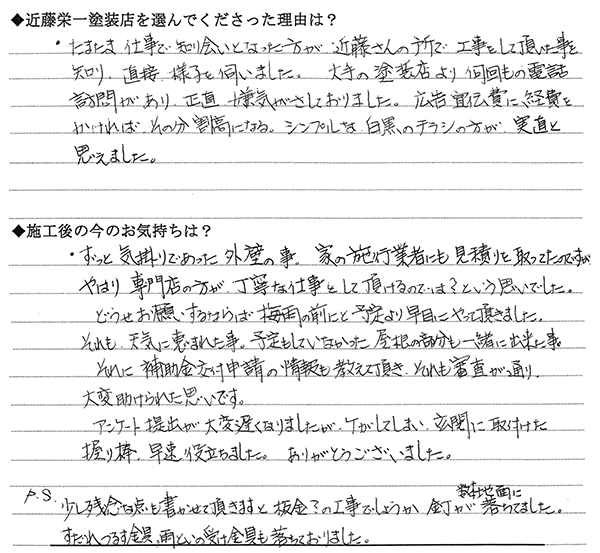 ◆近藤栄一塗装店を選んでくださった理由は？
・たまたま 仕事で 知り合いとなった方が 近藤さんの所で 工事をして頂いた事を
知り、直接 様子を伺いました。 大手の塗装店より 何回もの電話
訪問があり、正直 嫌気がさしておりました。 広告宣伝費に 経費を
かければ、その分 割高になる。 シンプルな 白黒のチラシの方が、実直と
思えました。
◆施工後の今のお気持ちは？
・ずっと 気掛りであった 外壁の事。 家の施行業者にも見積りを取ってたのですが
やはり 専門店の方が、丁寧な仕事をして頂けるのでは？という思いでした。
どうせお願いするならば 梅雨の前にと 予定より早目にやって頂きました。
それも、天気に恵まれた事。予定もしていなかった 屋根の部分も一緒に出来た事
それに 補助金交付申請の情報も教えて頂き、それも審査が通り、
大変助けられた思いです。
アンケート提出が大変遅くなりましたが、ケガしてしまい、玄関に取付けた
握り棒、早速役立ちました。 ありがとうございました。
P.S. 少し残念な点も書かせて頂きますと 板金？の工事でしょうか 釘が 数本地面に 落ちてました。
すだれつるす金具、雨といの受け金具も落ちておりました。